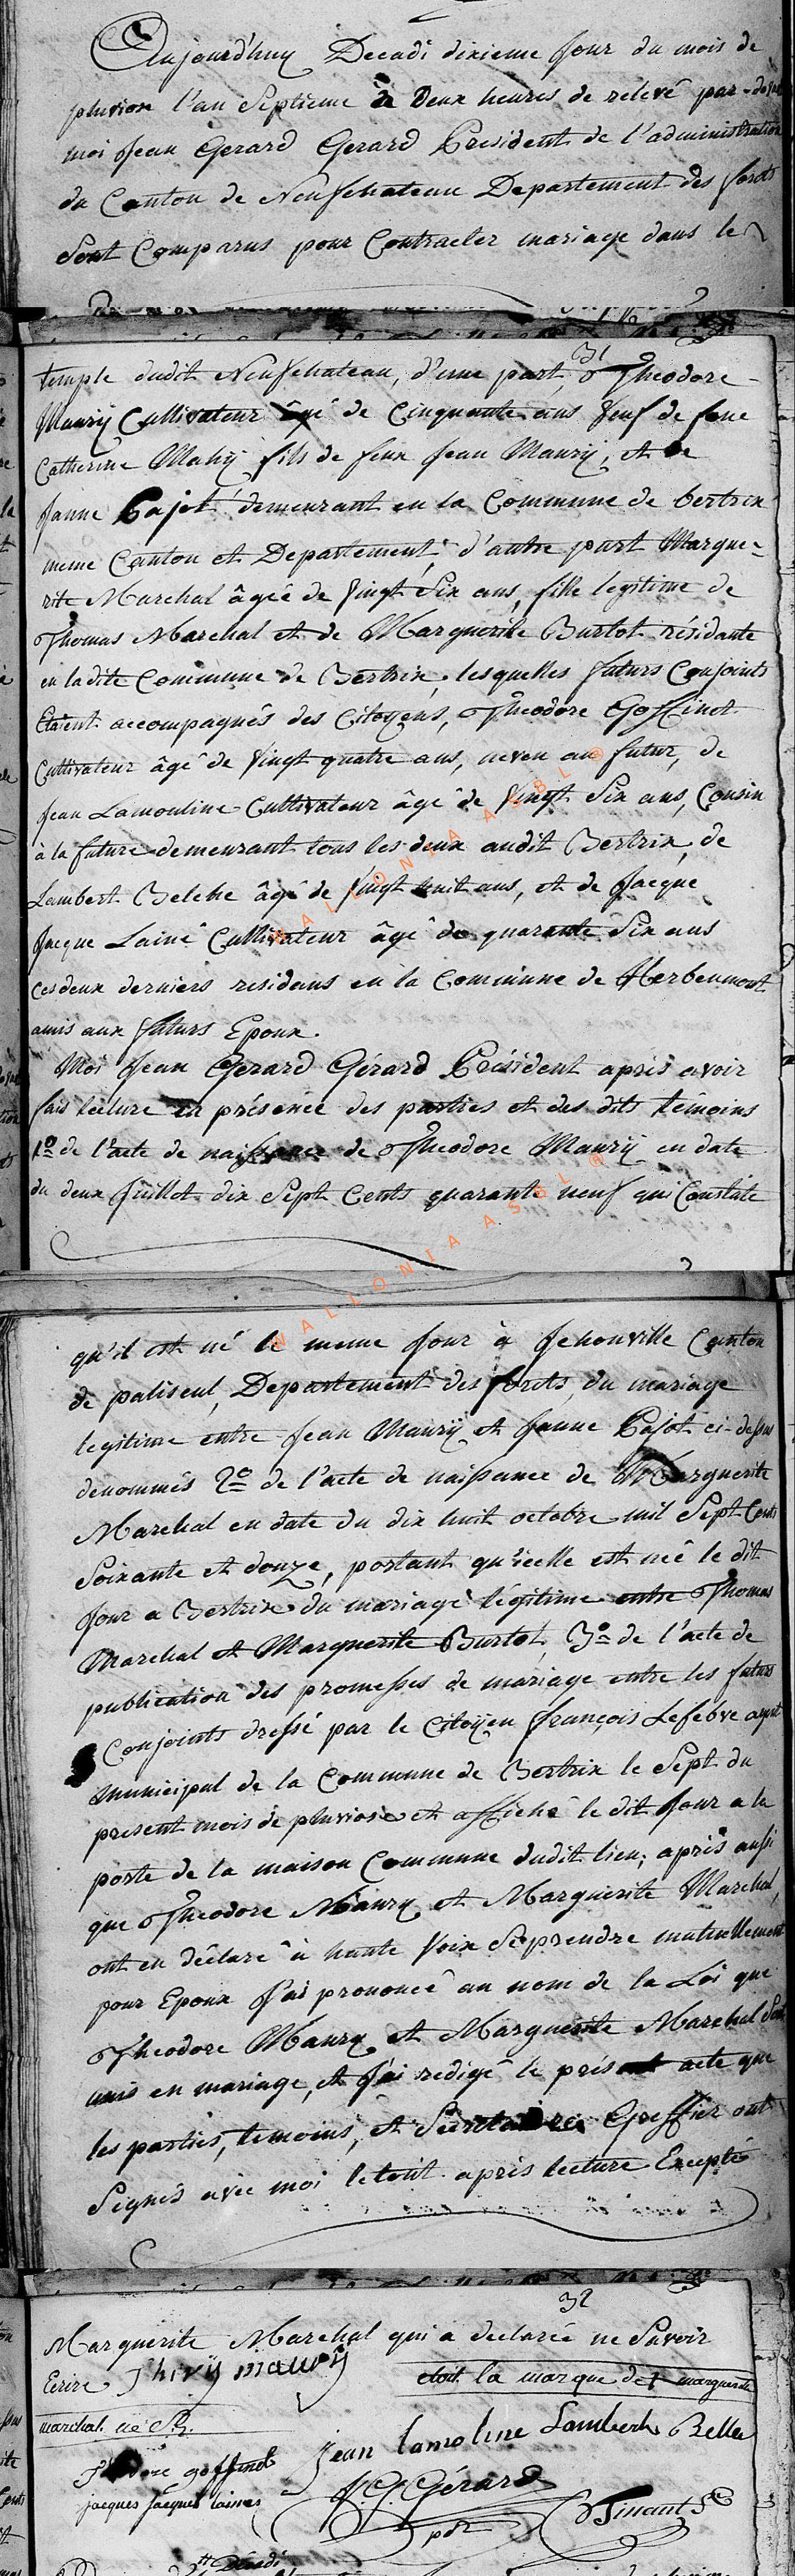 Aujourd'huy Decadi dixieme jour du mois de
pluviose l'an Septieme à Deux heures de relevé par-devant
moi Jean Gerard Gerard President de l'administration
du Canton de Neufchateau Departement des forets
Sont Comparus pour Contracter mariage dans le
31
temple dudit Neufchateau, d'une part, Theodore
Maurÿ Cultivateur âgé de Cinquante ans Veuf de feue
Catherine Mahÿ fils de feux Jean Maurÿ, et de
Janne Pajot demeurant en la Commune de bertrix
meme Canton et Departement, d'autre part Margue-
rite Marechal âgée de Vingt Six ans, fille legitime de
Thomas Marechal et de Marguerite Burtot résidante
en ladite Commune de Bertrix, lesquelles futurs Conjoints
Etoient accompagnés des Citoyens, Theodore Goffinet
Cultivateur âgé de Vingt quatre ans, neveu au futur, de
Jean Lamouline Cultivateur âgé de Vingt Six ans, Cousin
à la future demeurant tous les deux audit Bertrix, de
Lambert Beleke âgé de Vingt huit ans, et de Jacque
Jacque Lainé Cultivateur âgé de quarante Six ans
Ces deux derniers residens en la Commune de Herbeumont
amis aux futurs Epoux.
Moi Jean Gerard Gérard Président après avoir
fais lecture en présence des parties et des dits témoins
1o de l'acte de naissance de Theodore Maurÿ en date
du deux Juillet dix Sept Cents quarante neuf qui Constate
qu'il est né le meme Jour à Jehonville Canton
de paliseul, Departement des forets, du mariage
legitime entre Jean Maurÿ et Janne Pajot ci-dessus
denommés 2o de l'acte de naissance de Marguerite
Marechal en date du dix huit octobre mil Sept Cents
Soixante et douze, portant qu'icelle est née le dit
Jour a Bertrix du mariage légitime entre Thomas
Marechal et Marguerite Burtot, 3o de l'acte de
publication des promesses de mariage entre les futurs
Conjoints dressé par le Citoÿen françois Lefébvre agent
municipal de la Commune de Bertrix le Sept du
present mois de pluviose et affiché le dit Jour a la
porte de la maison Commune dudit lieu; après aussi
que Theodore Maury et Marguerite Marechal,
ont eu déclaré à haute Voix Se prendre mutuellement
pour Epoux J'ai prononcé au nom de la Loi que
Theodore Maury et Marguerite Marechal Sont
unis en mariage, et J'ai redigé le présent acte que
les parties, temoins, et Secretaire Greffier ont
Signés avec moi le tout après lecture Excepté
32
Marguerite Marechal qui a declarée ne Savoir
Ecrire Thirÿ maurÿ
etoit la marque de + marguerite
marchal
jean lamoline Lambert Belleke
goffinet
jacques jacques laines
J G Gérard
pdt
Tinant Sre
WALLONIA ASBL ®
WALLONIA ASBL ®